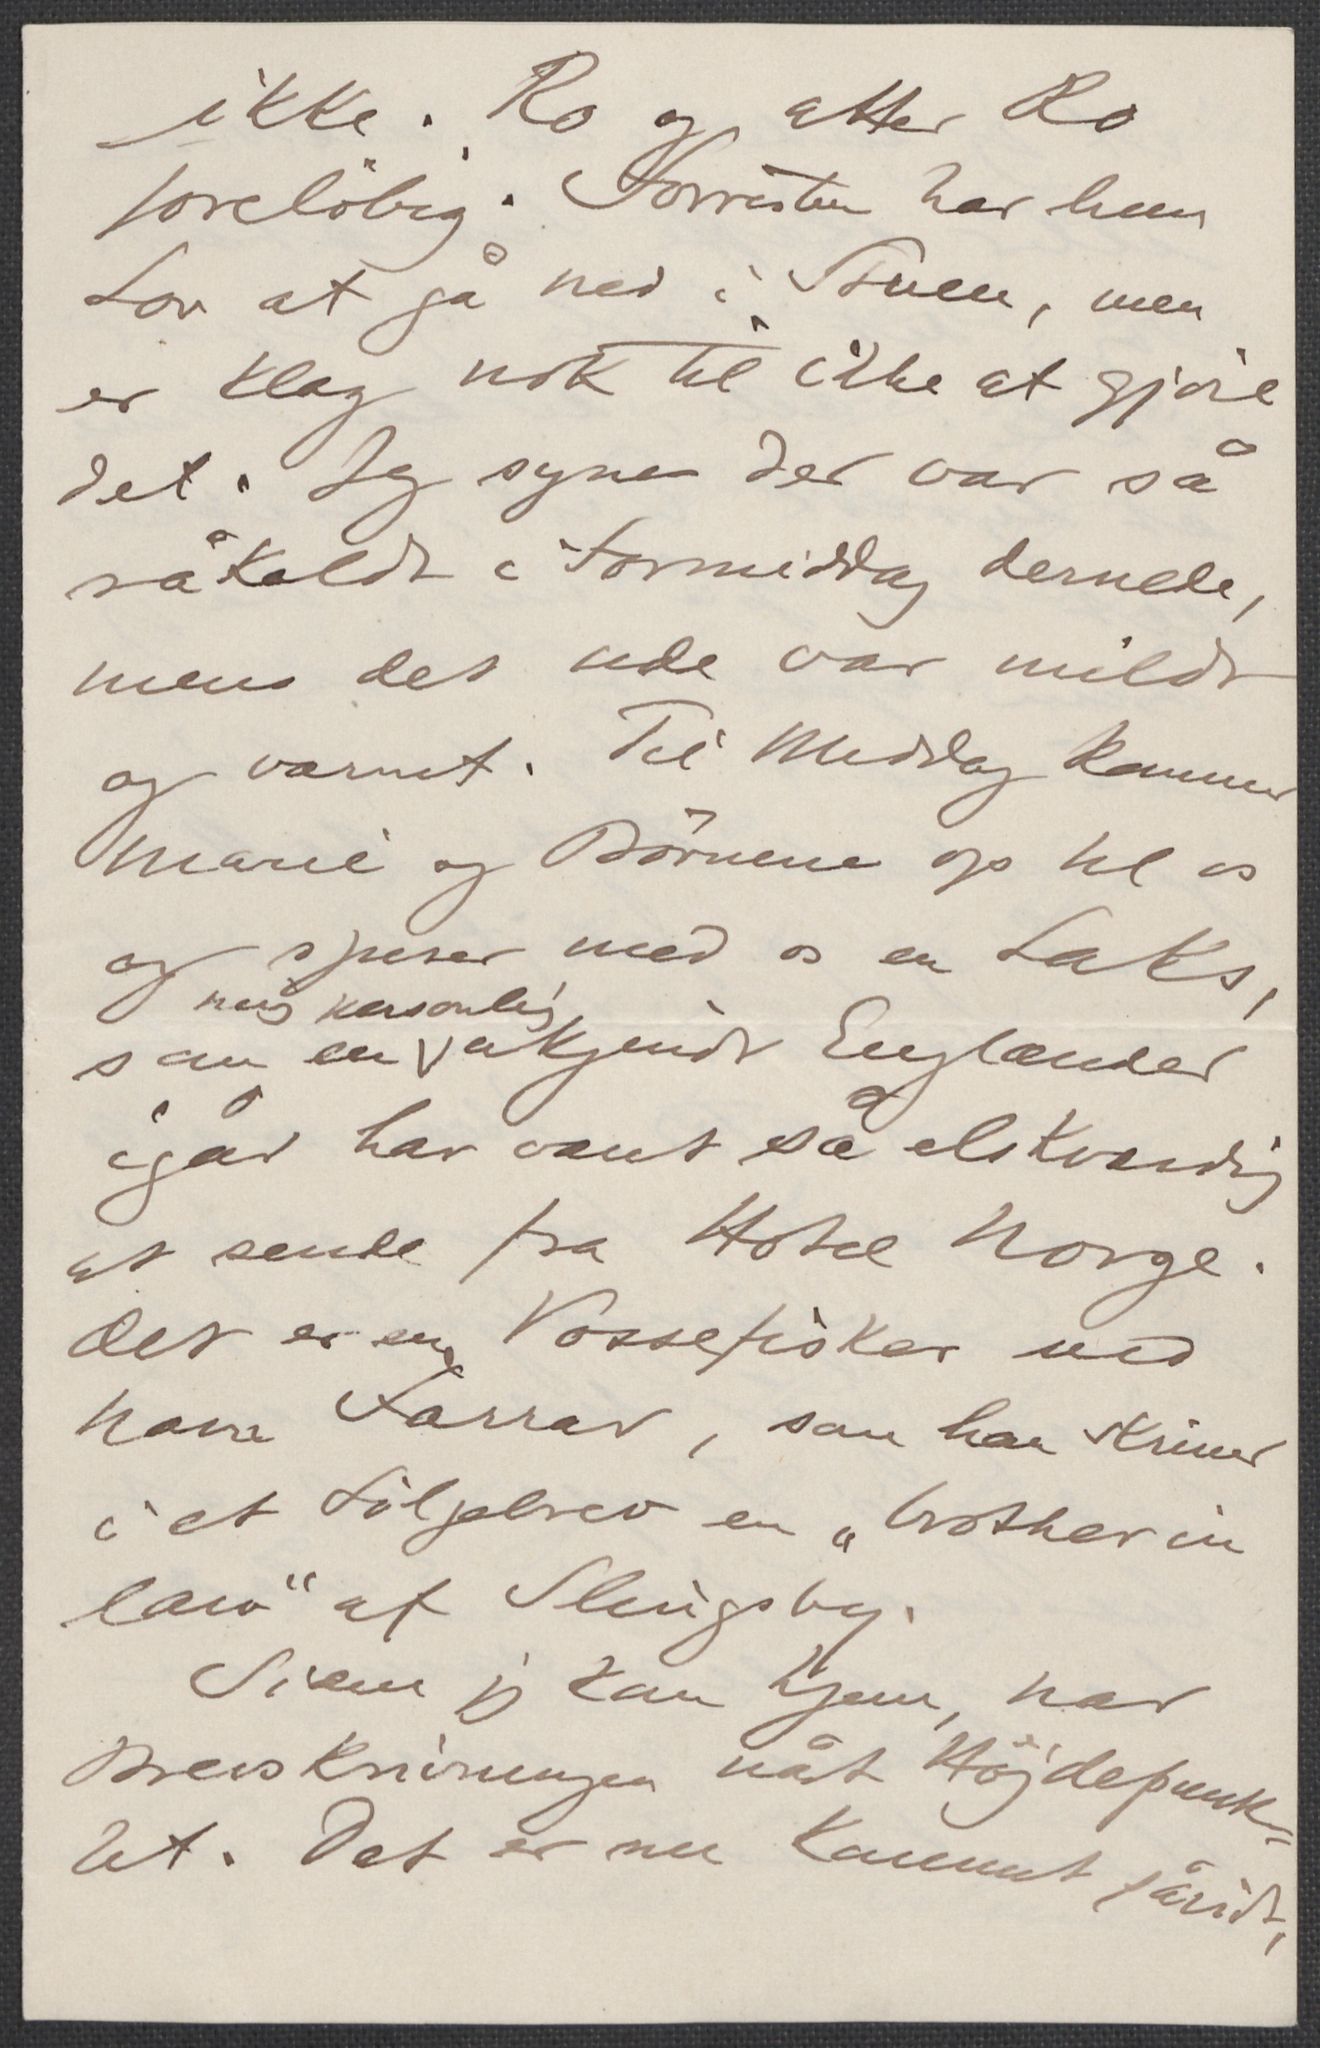 ikke. Ro og atter Ro
foreløbig. Forresten har hun
Lov at gå ned i Stuen, men
er klog nok til ikke at gjöre
det. Jeg synes der var så
råkoldt i Formiddag dernede,
mens det ude var mildt
og varmt. Til Middag kommer
Marie og Börnene op til os
og spiser med os en Laks,
mig personlig
som en ubekjendt Englænder
igår har været så elskværdig
at sende fra Hotel Norge.
Det er en Vossefisker med
Navn Farrar, som han skriver
i et Følgebrev en „brother in
law“ af Slingsby.
Siden jeg kom hjem, har
Brevskrivningen nåt Höjdepunk-
tet. Det er nu kommet såvidt,